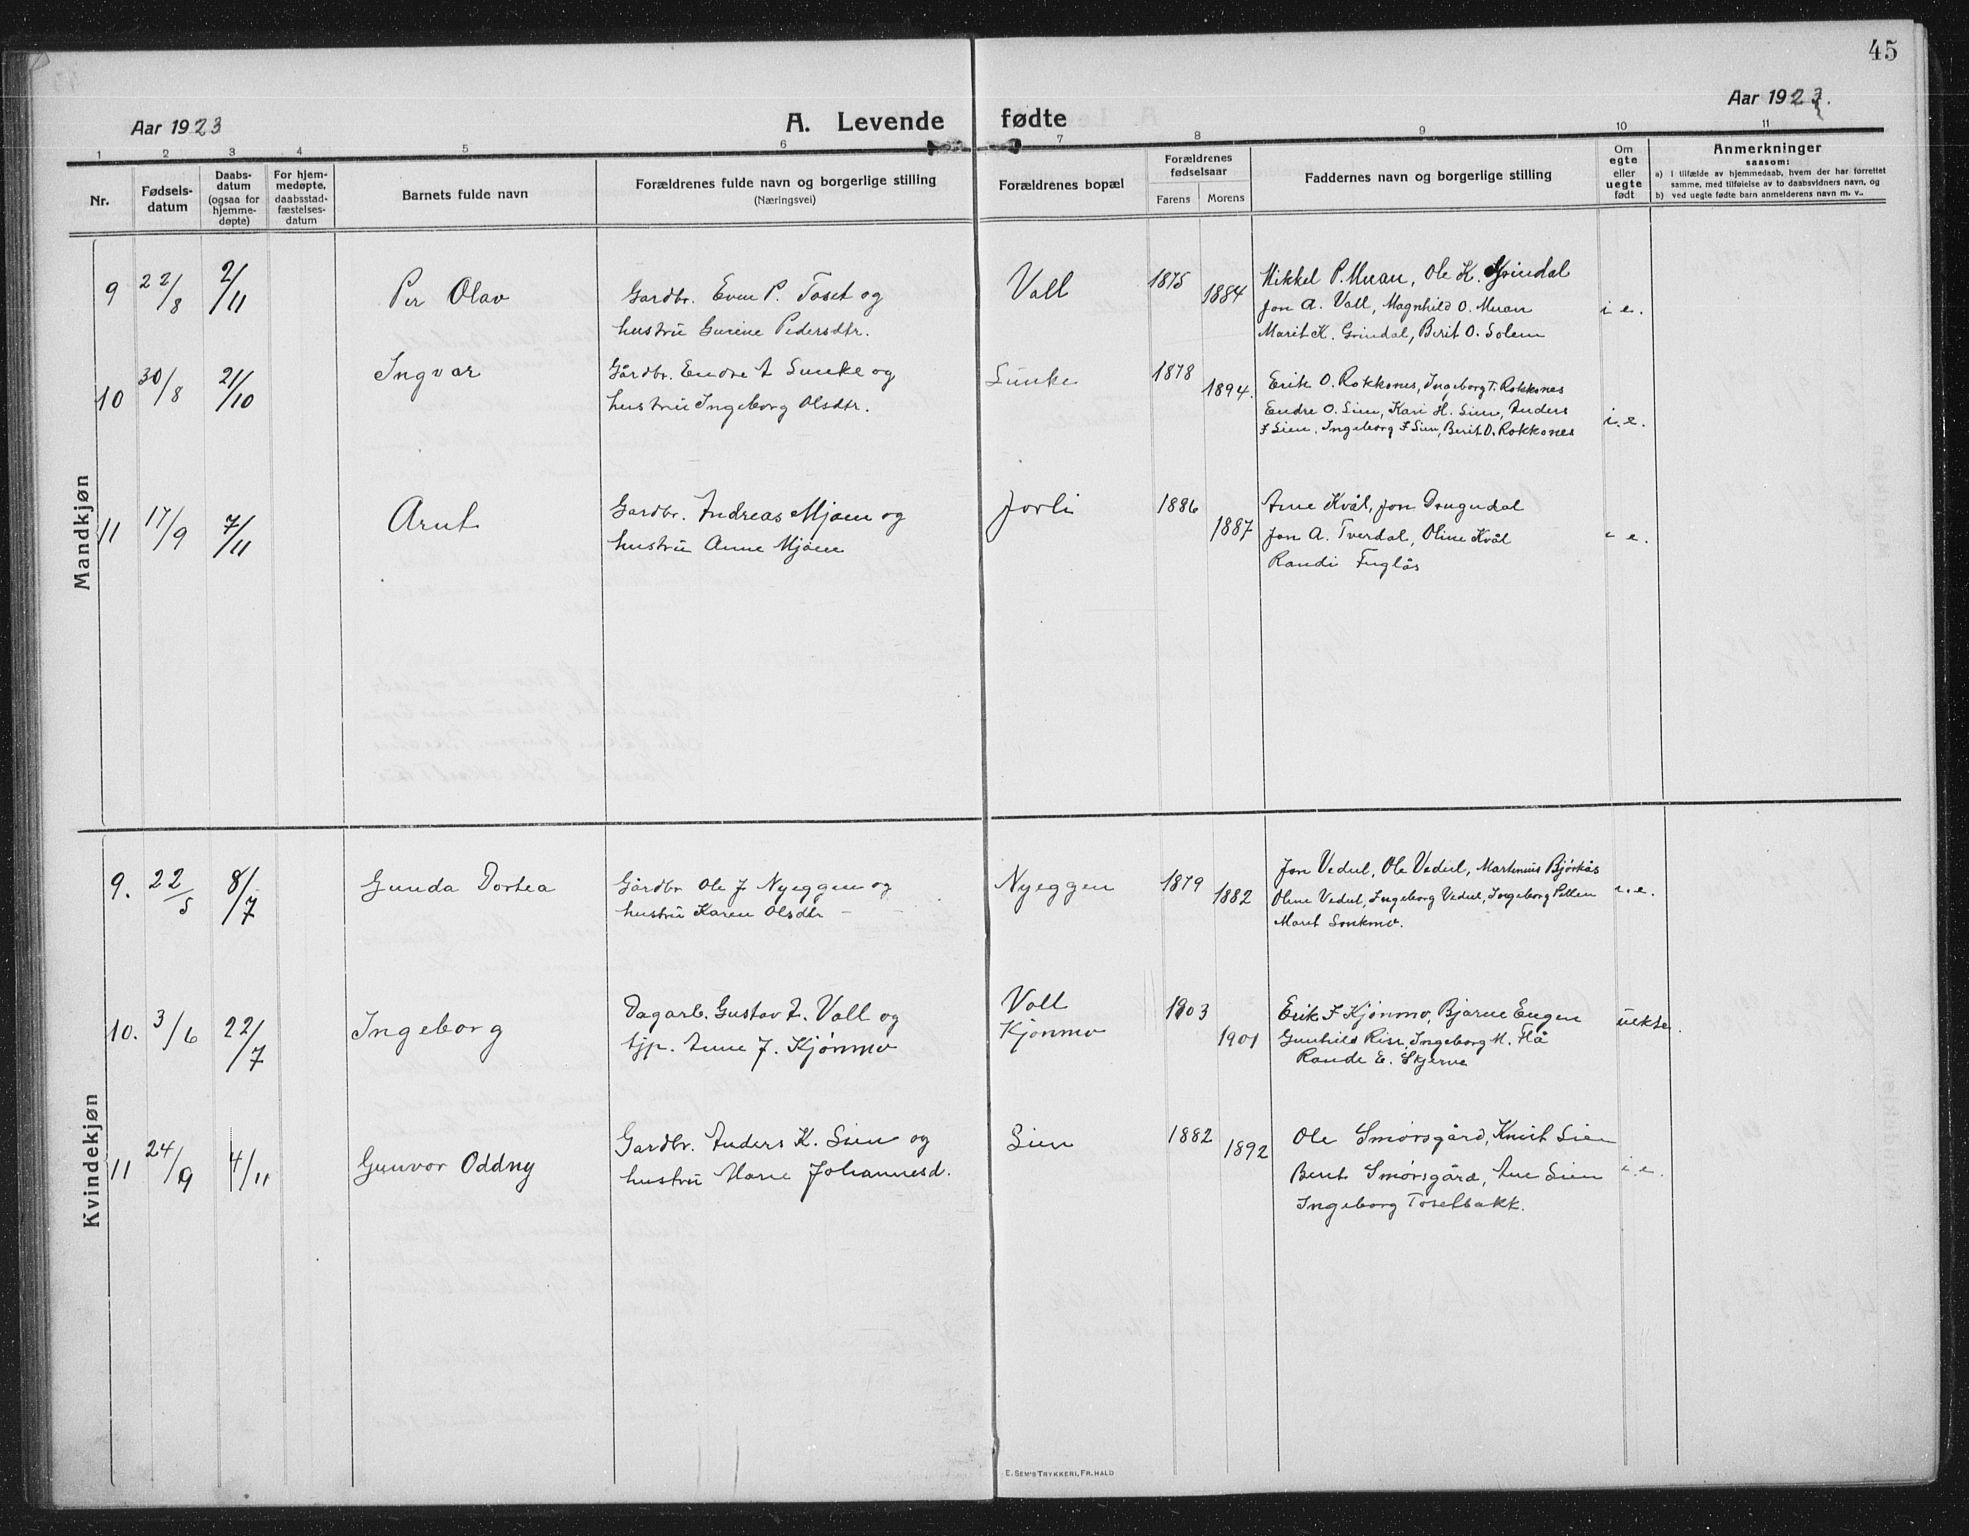 45
Aar 1923
A. Levende fødte
Aar 1923.
1 2 3 4 5 6 7 8 9 10 11
Nr.
Fødsels-
datum
Daabs-
datum
(ogsaa for
hjemme-
døpte)
For hjem-
medøpte,
daabsstad-
fæstelses-
datum
Barnets fulde navn
Forældrenes fulde navn og borgerlige stilling
(Næringsvei)
Forældrenes bopæl
Forældrenes
fødselsaar
Farens Morens
Faddernes navn og borgerlige stilling
Om
egte
eller
uegte
født
Anmerkninger
saasom:
a) I tilfælde av hjemmedaab, hvem der har forrettet
samme, med tilføielse av to daabsvidners navn, og
b) ved uegte fødte barn anmelderens navn m. v..
Mandkjøn
9 22/8 2/11 Per Olav
Gardbr. Even P. Toset og
hustru Gurine Pedersdtr.
Voll 1875 1884
Mikkel P. Muan, Ole K. Grindal
Jon A. Voll, Magnhild O. Muan
Marit K. Grindal, Berit O. Solem
i e.
10 30/8 21/10 Ingvar
Gårdbr. Endre A Lunke og
hustru Ingeborg Olsdtr.
Lunke 1878 1894.
Erik O. Rokkones, Ingeborg T. Rokkones
Endre O. Lien, Kari H. Lien, Anders
F Lien, Ingeborg F Lien, Berit O. Rokkones
i. e.
11 17/9 7/11 Arnt
Gardbr. Andreas Mjøen og
hustru Anne Mjøen
Jorli 1886 1887
Arne Kvål, Jon Drugudal
Jon A. Tverdal, Oline Kvål
Randi Fuglås
i e.
Kvindekjøn
9. 22/5 8/7 Gunda Dortea
Gårdbr Ole J Nyeggen og
hustru Karen Olsdtr
Nyeggen 1879 1882
Jon Vedul, Ole Vedul, Martinius Bjørkås
Oline Vedul, Ingeborg Vedul, Ingeborg Petlen
Marit Lonkmo.
i. e.
10. 3/6 22/7 Ingeborg
Dagarb. Gustav A. Voll og
tjp. Anne J. Kjønmo
Voll
Kjønmo
1903 1901
Erik F Kjønmo, Bjarne Engen
Gunhild Rise, Ingeborg M. Flå
Rande E. Skjerve
uekte.
11 24/9 4/11 Gunvor Oddny
Gardbr. Anders K. Lien og
hustru Marie Johannesd.
Lien 1882 1892
Ole Smørsgård, Knut Lien
Berit Smørsgård, Ane Lien
Ingeborg Tosetbakk.
i. e.
E. SEM'S TRYKKERI, FR.HALD